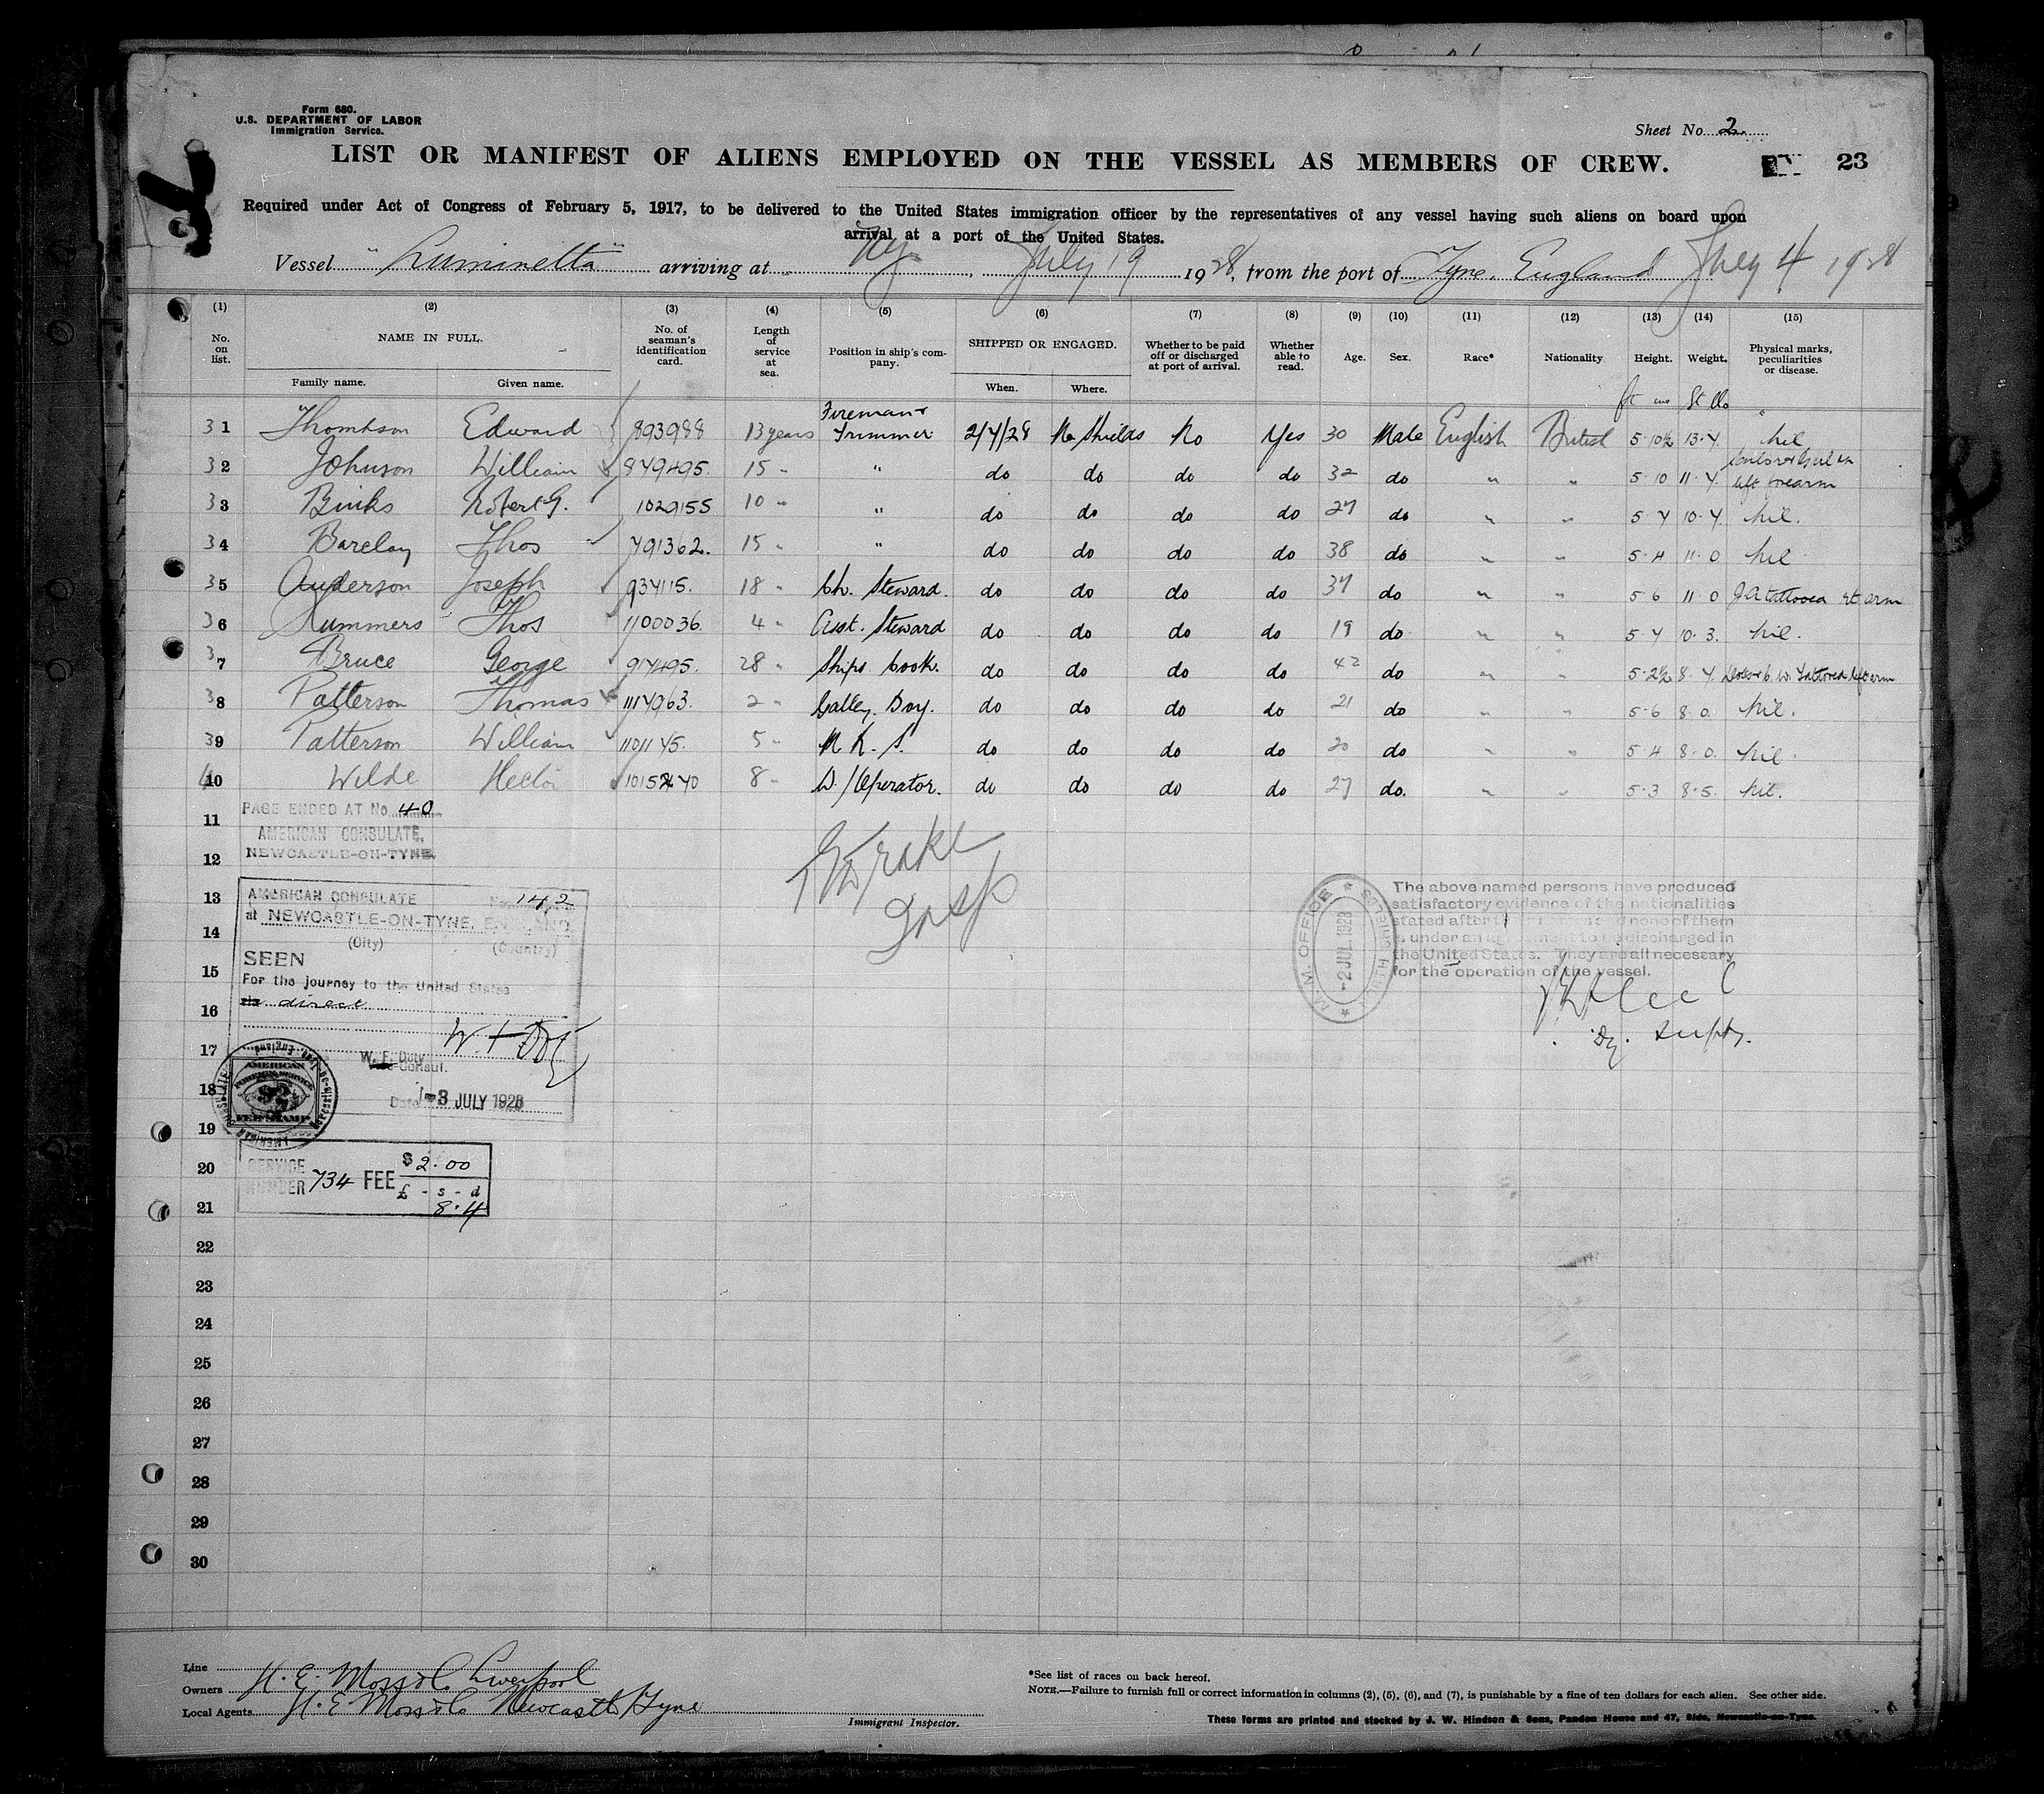 Form 680.
U.S. DEPARTMENT OF LABOR
Immigration Service.
Sheet No. 2.
LIST OR MANIFEST OF ALIENS EMPLOYED ON THE VESSEL AS MEMBERS OF CREW.
23
Required under Act of Congress of February 5, 1917, to be delivered to the United States immigration officer by the representatives of any vessel having such aliens on board upon
arrival at a port of the United States.
Vessel "Luminetta" arriving at Ny, July 19 1928, from the port of Tyne, England July 4 1928
(1) (2) (3) (4) (5) (6) (7) (8) (9) (10) (11) (12) (13) (14) (15)
No. on list. NAME IN FULL. Family name. Given name. No. of seaman's identification card. Length of service at sea. Position in ship's company. SHIPPED OR ENGAGED. When. Where. Whether to be paid off or discharged at port of arrival. Whether able to read. Age. Sex. Race* Nationality. Height. Weight. Physical marks, peculiarities or disease.
31 Thompson Edward 893988 13 years Fireman & Trimmer 2/7/28 No Shields No Yes 30 Male English British 5-10½ 13-7. Nil
32 Johnson William 879495. 15 " " do do do do 32 do " " 5-10 11-7. left forearm
33 Binks Robert G. 1029155 10 " " do do do do 27 do " " 5-7 10-7. Nil.
34 Barclay Thos 791362. 15 " " do do do do 38 do " " 5-4 11-0 Nil
35 Anderson Joseph 934115. 18 " Ch. Steward. do do do do 37 do " " 5-6 11-0 J A tattooed rt arm
36 Summers Thos 1100036. 4 " Asst. Steward do do do do 19 do " " 5-7 10-3. Nil.
37 Bruce George 917495. 28 " Ships Cook. do do do do 42 do " " 5-2½ 8-7. Tattooed left arm
38 Patterson Thomas 1117963. 2 " Galley Boy. do do do do 21 do " " 5-6 8-0. Nil.
39 Patterson William 1101145. 5 " M. R. S. do do do do 20 do " " 5-4 8-0. Nil.
40 Wilde Hector 8 " W/Operator. do do do do 27 do. " " 5-3 8-5. Nil.
PAGE ENDED AT No. 40
AMERICAN CONSULATE,
NEWCASTLE-ON-TYNE.
11
12
13
14
15
16
17
18
19
20
21
22
23
24
25
26
27
28
29
30
AMERICAN CONSULATE 142
at NEWCASTLE-ON-TYNE, ENGLAND.
(City) (Country)
SEEN
For the journey to the United States
via direct
W. F. Duty
Vice-Consul.
Date -3 JULY 1928
AMERICAN
FOREIGN SERVICE
$2
FEE STAMP
SERVICE NUMBER 734 FEE $ 2.00
£ - s - d
8.4
Insp
M. M. OFFICE
-2 JUL 1928
The above named persons have produced
satisfactory evidence of the nationalities
stated after and none of them
is under an agreement to be discharged in
the United States. They are all necessary
for the operation of the vessel.
Dy. Supt.
Line
Owners H. E. Moss & Co. Liverpool
Local Agents H. E. Moss & Co Newcastle/Tyne
Immigrant Inspector.
*See list of races on back hereof.
NOTE.—Failure to furnish full or correct information in columns (2), (5), (6), and (7), is punishable by a fine of ten dollars for each alien. See other side.
These forms are printed and stocked by J. W. Hindson & Sons, Pandon House and 47, Side, Newcastle-on-Tyne.